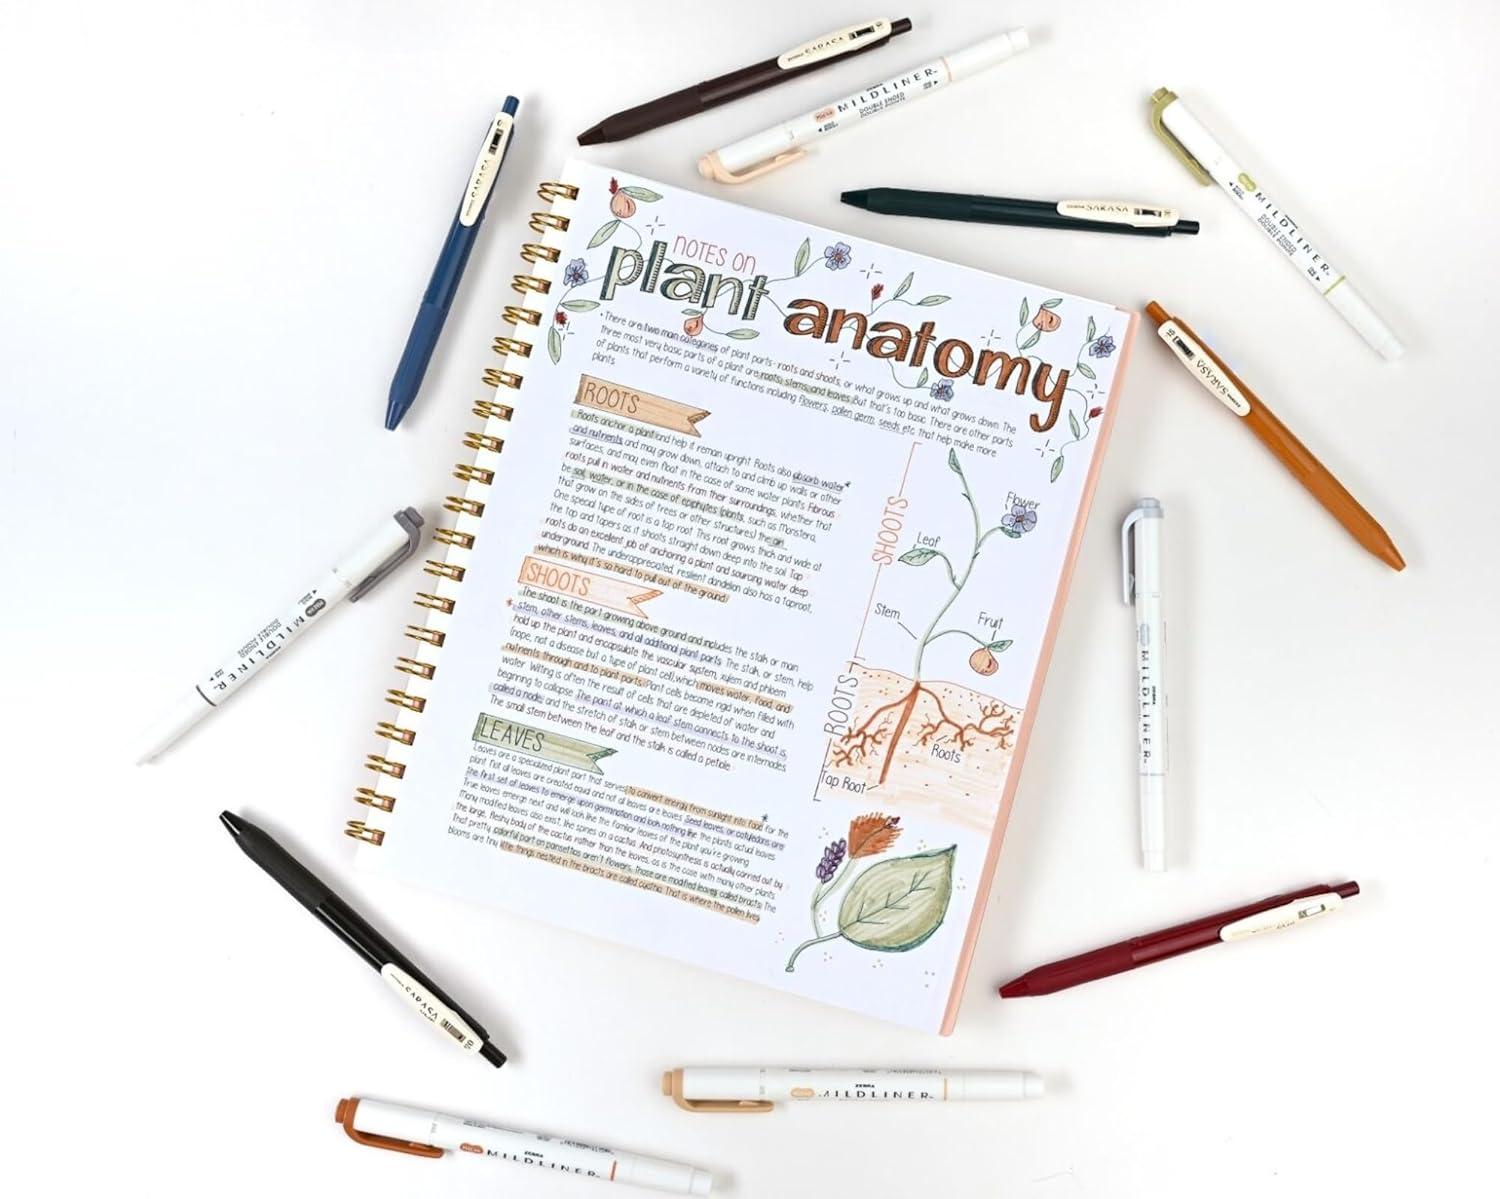 NOTES ON
plant anatomy
• There are two main categories of plant parts - roots and shoots, or what grows up and what grows down. The
three most very basic parts of a plant are roots, stems, and leaves. But that's too basic. There are other parts
of plants that perform a variety of functions including flowers, pollen germ, seeds etc. that help make more
plants.
ROOTS
Roots anchor a plant and help it remain upright. Roots also absorb water*
and nutrients and may grow down, attach to and climb up walls or other
surfaces, and may even float in the case of some water plants. Fibrous
roots pull in water and nutrients from their surroundings, whether that
be soil, water, or in the case of epiphytes (plants, such as Monstera,
that grow on the sides of trees or other structures) the air.
One special type of root is a tap root. This root grows thick and wide at
the top and tapers as it shoots straight down deep into the soil. Tap
roots do an excellent job of anchoring a plant and sourcing water deep
underground. The underappreciated, resilient dandelion also has a taproot,
which is why it's so hard to pull out of the ground!
SHOOTS
The shoot is the part growing above ground and includes the stalk or main
* stem, other stems, leaves, and all additional plant parts. The stalk, or stem, help
hold up the plant and encapsulate the vascular system, xylem and phloem
(nope, not a disease but a type of plant cell), which moves water, food, and
nutrients through and to plant parts. Plant cells become rigid when filled with
water. Wilting is often the result of cells that are depleted of water and
beginning to collapse. The point at which a leaf stem connects to the shoot is
called a node, and the stretch of stalk or stem between nodes are internodes
The small stem between the leaf and the stalk is called a petiole.
LEAVES
Leaves are a specialized plant part that serves to convert energy from sunlight into food* for the
plant. Not all leaves are created equal and not all leaves are leaves. Seed leaves, or cotyledons are
the first set of leaves to emerge upon germination and look nothing like the plants actual leaves
True leaves emerge next and will look like the familiar leaves of the plant you're growing
Many modified leaves also exist, like spines on a cactus. And photosynthesis is actually carried out by
the large, fleshy body of the cactus rather than the leaves, as is the case with many other plants
That pretty, colorful part on poinsettias aren't flowers, those are modified leaves, called bracts. The
blooms are tiny little things nested in the bracts are called cyathia. That is where the pollen lives
SHOOTS
Flower
Leaf
Stem
Fruit
ROOTS
Roots
Tap Root
ZEBRA SARASA
ZEBRA MILDLINER
DOUBLE ENDED
SARASA
ZEBRA SARASA
MILDLINER
DOUBLE ENDED
SARASA
MILDLINER
DOUBLE ENDED
ZEBRA MILDLINER
SARASA
ZEBRA MILDLINER
ZEBRA MILDLINER